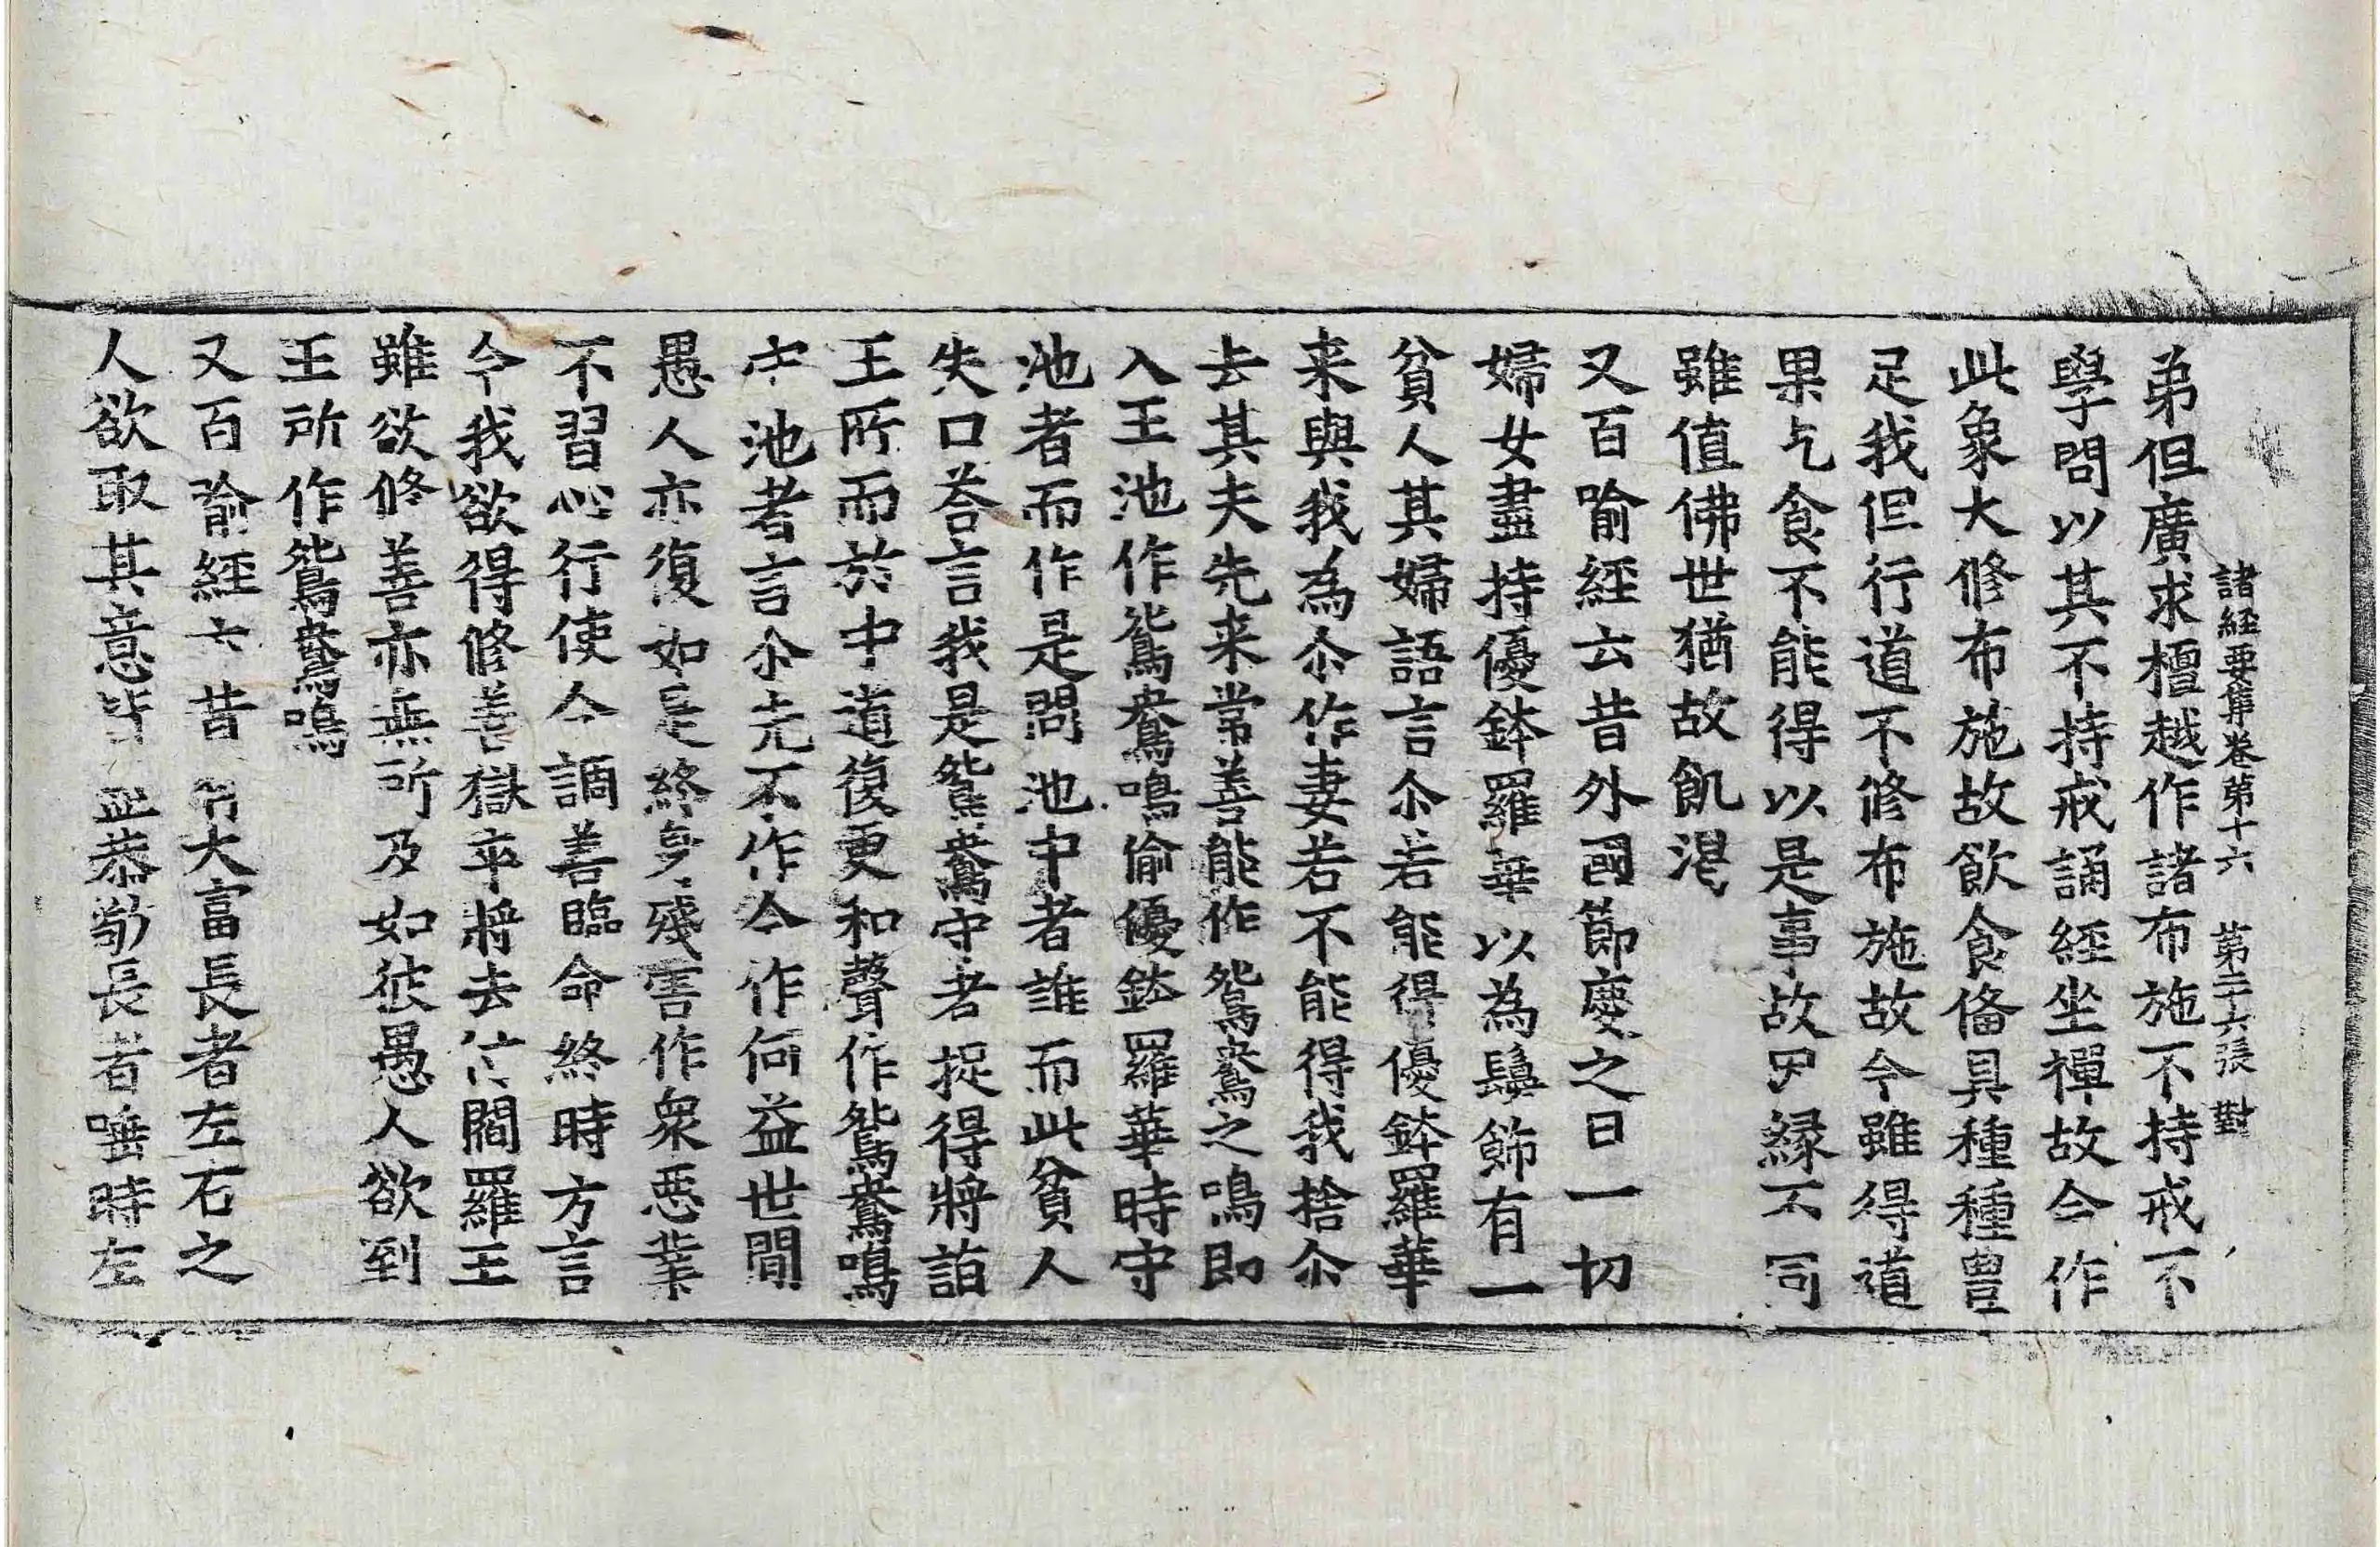 諸經要集卷第十六 第二十六張 對
弟但廣求檀越作諸布施不持戒不
學問以其不持戒誦經坐禪故今作
此象大修布施故飲食俻具種種豊
足我但行道不修布施故今雖得道
果乞食不能得以是事故因縁不同
雖值佛世猶故飢渴
又百喻經云昔外國節慶之日一切
婦女盡持優鉢羅華以為鬘飾有一
貧人其婦語言尒若能得優鉢羅華
来與我為尒作妻若不能得我捨尒
去其夫先来常善能作鴛鴦之鳴即
入王池作鴛鴦鳴偷優鉢羅華時守
池者而作是問池中者誰而此貧人
失口荅言我是鴛鴦守者捉得將詣
王所而於中道復更和聲作鴛鴦鳴
守池者言尒先不作今作何益世間
愚人亦復如是終身殘害作衆惡業
不習心行使令調善臨命終時方言
今我欲得修善獄卒將去付閻羅王
雖欲修善亦無所及如彼愚人欲到
王所作鴛鴦鳴
又百喻經云昔有大富長者左右之
人欲取其意皆盡恭敬長者唾時左